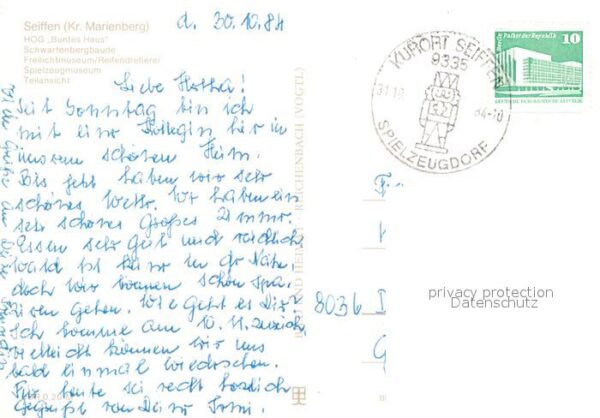 Seiffen (Kr. Marienberg)
HOG „Buntes Haus"
Schwartenbergbaude
Freilichtmuseum/Reifendreherei
Spielzeugmuseum
Teilansicht
d. 30.10.84
Liebe
Seit Sonntag bin ich
mit einer Kollegin hier in
unserem schönen Heim.
Bis jetzt haben wir sehr
schönes Wetter. Wir haben ein
sehr schönes Großes Zimmer.
Essen sehr Gut und reichlich
Wald ist hier in der Nähe,
doch wir können schön spa-
zieren Gehen. Wie Geht es Dir?
Ich komme am 10.11. zurück,
vielleicht können wir uns
bald einmal wiedersehen.
Für heute sei recht herzlich
Gegrüßt von Deiner
REICHENBACH (VOGTL)
KURORT SEIFFEN
9335
31.10
84-10
SPIELZEUGDORF
Berlin, Palast der Republik
10
DEUTSCHE DEMOKRATISCHE REPUBLIK
8036
privacy protection
Datenschutz